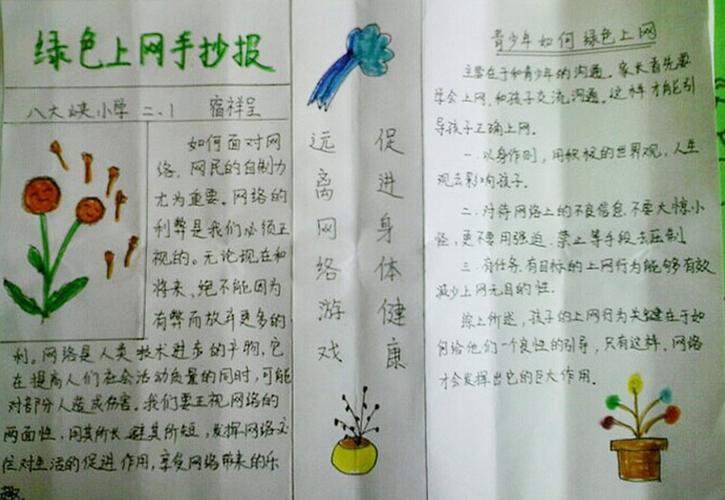 绿色上网手抄报
八大峡小学 二、1 宿祥呈
如何面对网
络,网民的自制力
尤为重要。网络的
利弊是我们必须正
视的。无论现在和
将来、绝不能因为
有弊而放弃更多的
利。网络是人类技术进步的产物,它
在提高人们社会活动质量的同时,可能
对部分人造成伤害。我们要正视网络的
两面性,用其所长,避其所短,发挥网络交
位对生活的促进作用,享受网络带来的乐
趣.
远离网络游戏
促进身体健康
青少年如何绿色上网
主要在于和青少年的沟通。家长首先要
学会上网,和孩子交流,沟通。这样才能引
导孩子正确上网.
一.以身作则,用积极的世界观,人生
观去影响孩子.
二.对待网络上的不良信息.不要大惊小
怪,更不要用强迫.禁止等手段去压制
三.有任务.有目标的上网行为能够有效
减少上网无目的性.
综上所述,孩子的上网行为关键在于如
何给他们一个良性的引导,只有这样.网络
才会发挥出它的巨大作用.